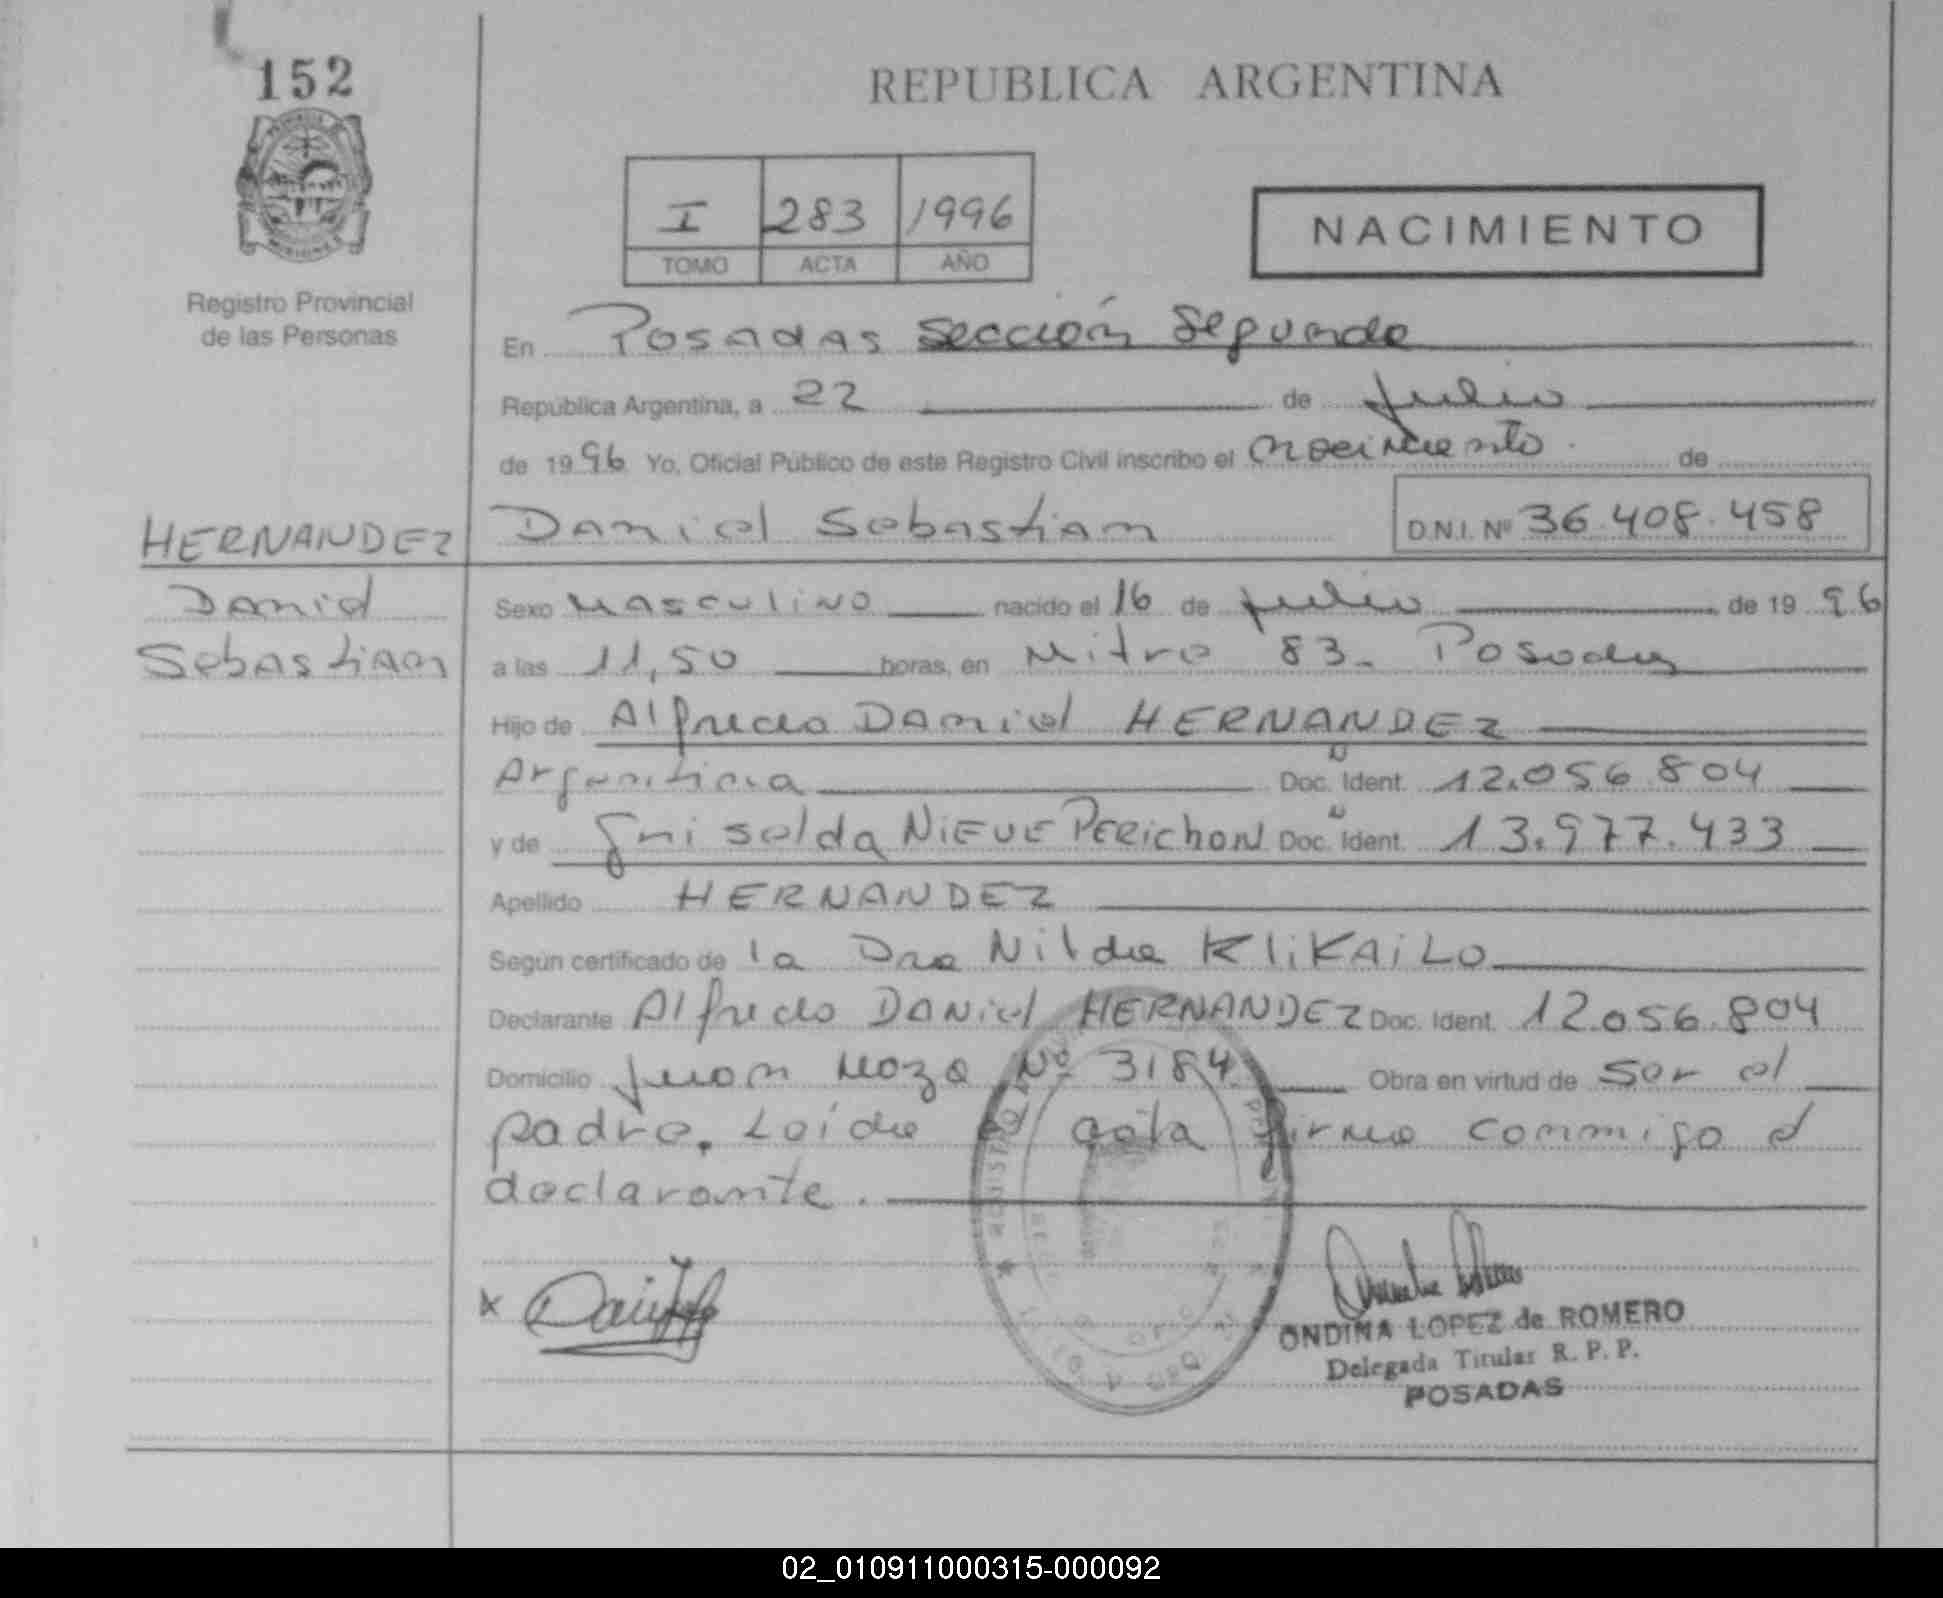 152
REPUBLICA ARGENTINA
I 283 1996
TOMO ACTA AÑO
NACIMIENTO
Registro Provincial
de las Personas
En Posadas sección Segunda
República Argentina, a 22 de Julio
de 1996 Yo, Oficial Público de este Registro Civil inscribo el nacimiento de
HERNANDEZ Daniel Sebastian D.N.I. Nº 36.408.458
Daniel Sexo Masculino nacido el 16 de Julio de 1996
Sebastian a las 11,50 horas, en Mitre 83. Posadas
Hijo de Alfredo Daniel HERNANDEZ
Argentina Doc. Ident. 12.056.804
y de Griselda NIEVE PERICHON Doc. Ident. 13.977.433
Apellido HERNANDEZ
Según certificado de la Dra Nilda KLIKAILO
Declarante Alfredo DANiel HERNANDEZ Doc. Ident. 12.056.804
Domicilio Juan Nº 3184 Obra en virtud de Ser el
padre. Leída acta firma conmigo el
declarante.
ONDINA LOPEZ de ROMERO
Delegada Titular R. P. P.
POSADAS
02_010911000315-000092